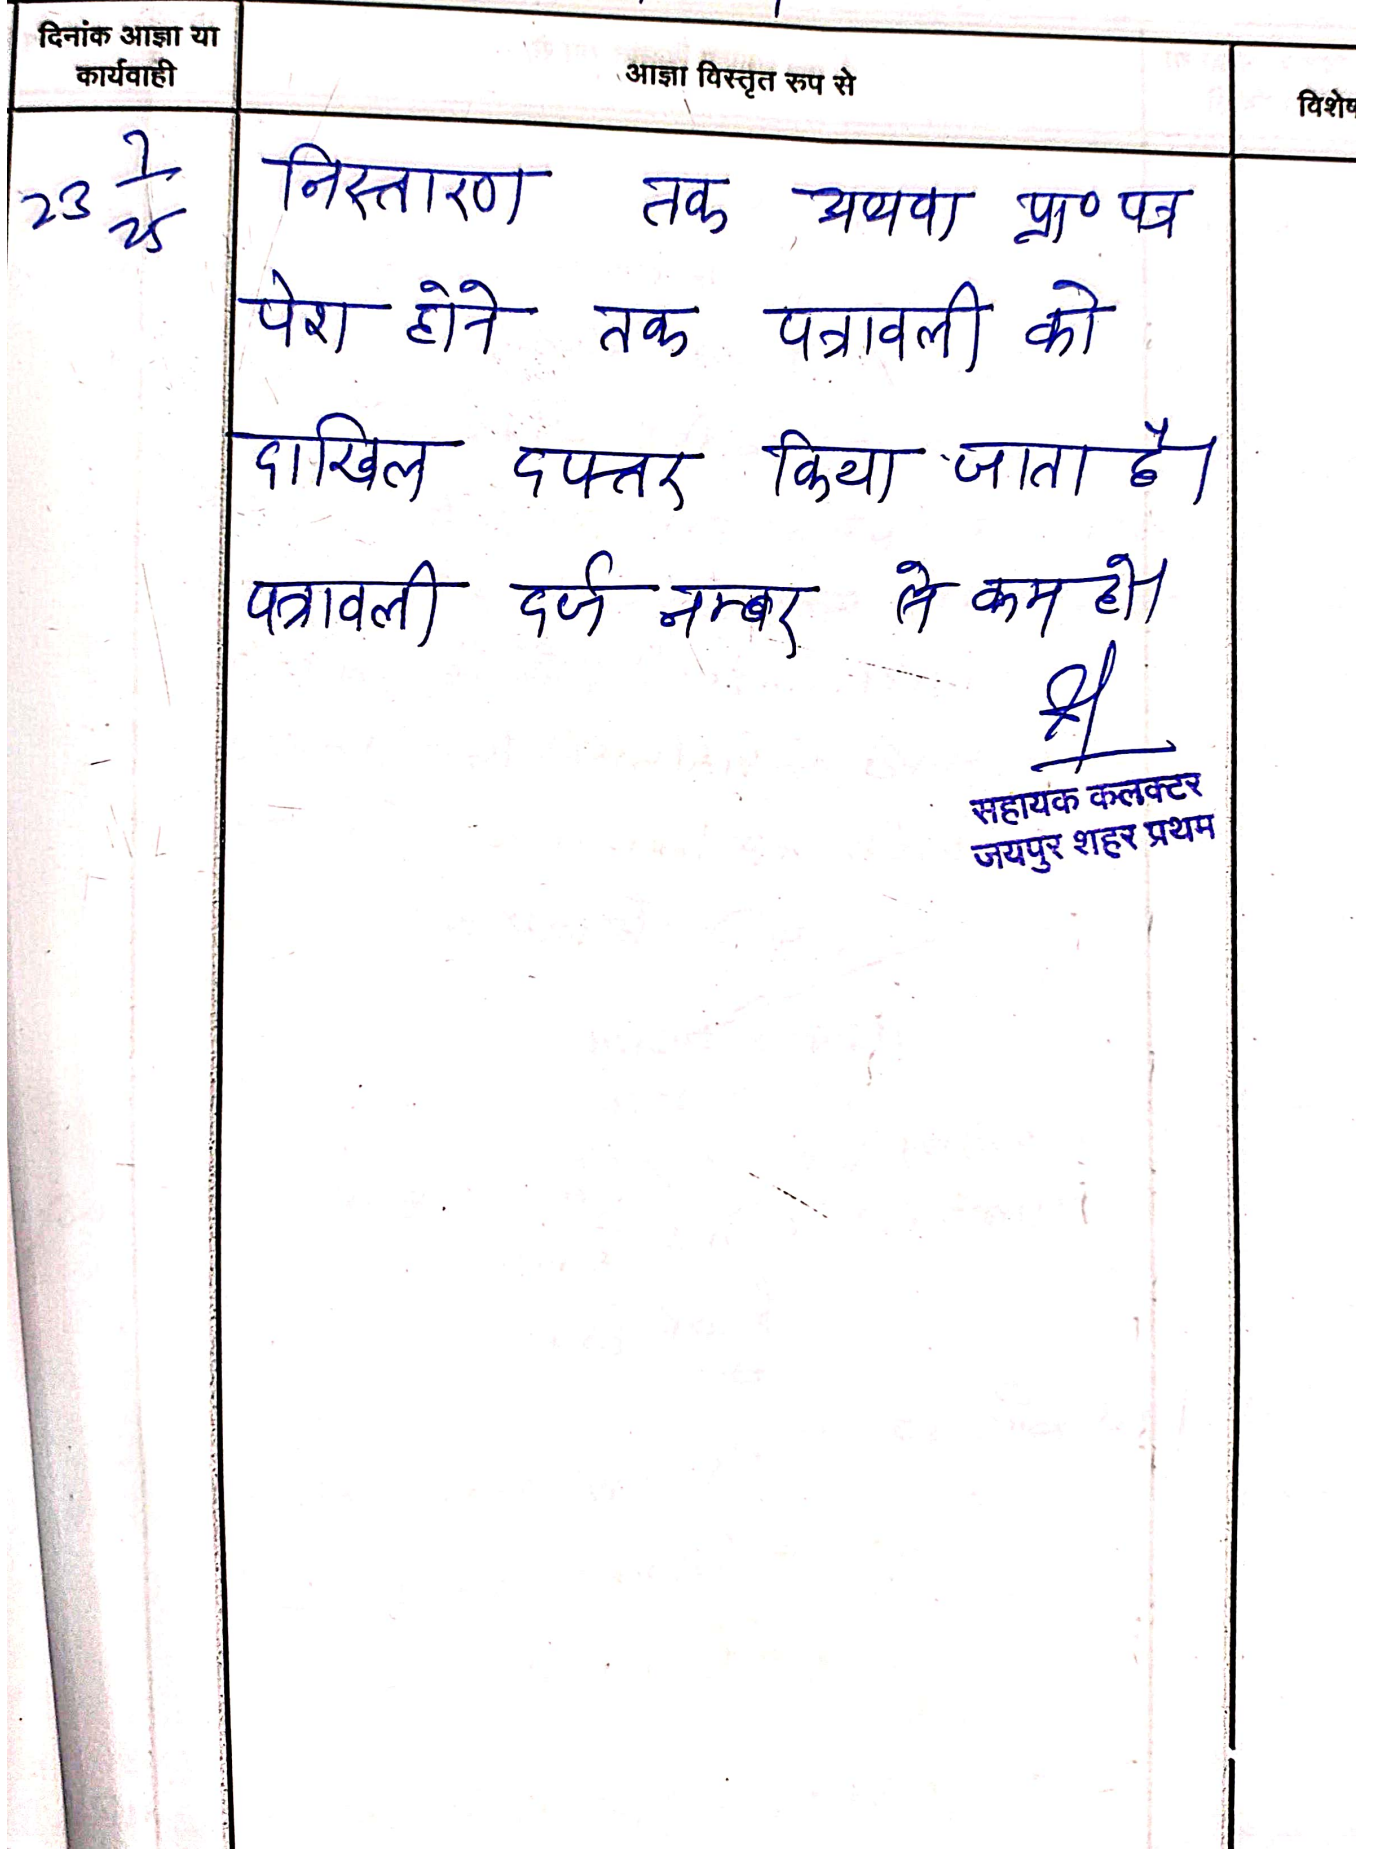 दिनांक आज्ञा या
कार्यवाही
आज्ञा विस्तृत रुप से
विशेष
23 7/25
निस्तारण तक अथवा प्रा० पत्र
पेश होने तक पत्रावली को
दाखिल दफ्तर किया जाता है।
पत्रावली दर्ज नम्बर से कम हो।
सहायक कलक्टर
जयपुर शहर प्रथम